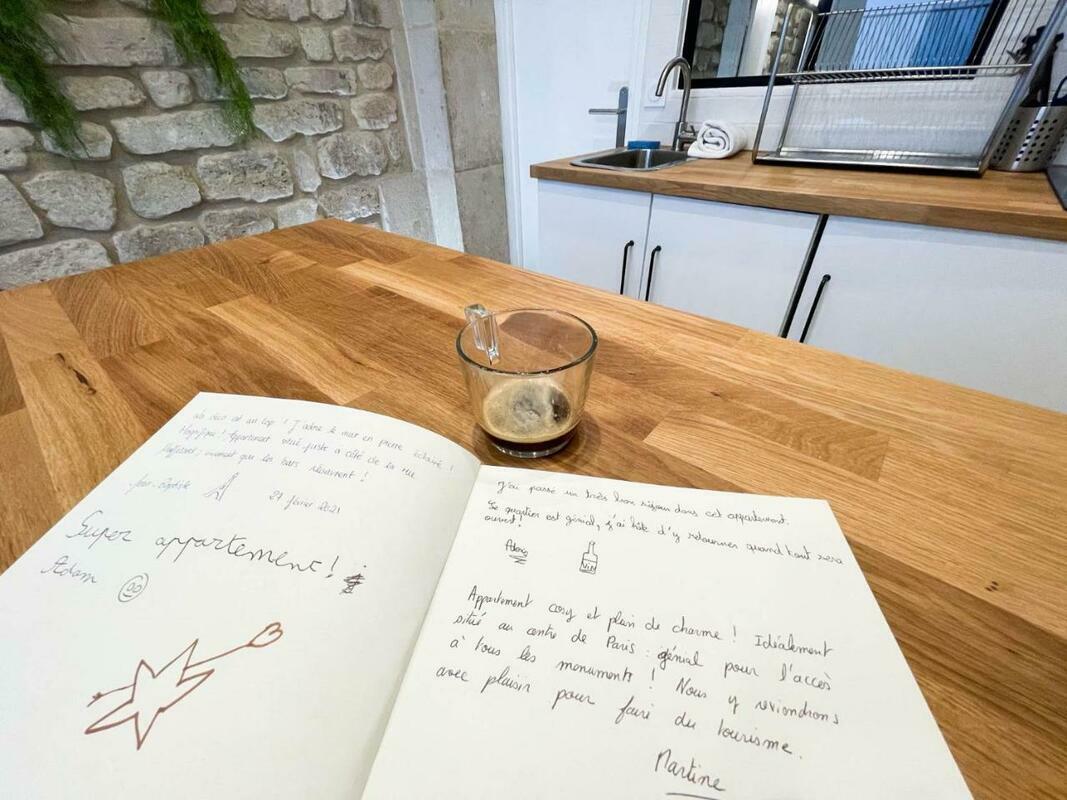 La déco est au top ! J'adore le mur en pierre éclairé !
Magnifique ! Appartement situé juste à côté de la rue
; vivement que les bars réouvrent !
Jean-Baptiste
21 février 2021
Super appartement !
Adam
J'ai passé un très bon séjour dans cet appartement.
Le quartier est génial, j'ai hâte d'y retourner quand tout sera
ouvert !
VIN
Appartement cosy et plein de charme ! Idéalement
situé au centre de Paris : génial pour l'accès
à tous les monuments ! Nous y reviendrons
avec plaisir pour faire du tourisme.
Martine